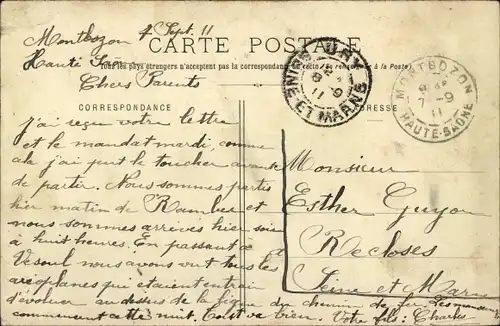 Montbozon 7 Sept. 11
Haute Saône
CARTE POSTALE
Tous les pays étrangers n'acceptent pas la correspondance au recto (Se renseigner à la Poste)
Chers Parents
CORRESPONDANCE
ADRESSE
J'ai reçu votre lettre
et le mandat mardi, comme
cela j'ai peut le toucher avant
de partir. Nous sommes partis
hier matin de et
nous sommes arrivés hier soir
à huit heures. En passant à
Vesoul nous avons vut tous les
aréoplanes que étaient entrain
d'évoluer au dessus de la ligne du chemin de fer. Les manœuvres
commencent cette nuit. Tout va bien. Votre fils: Charles
Monsieur
Esther Guyon
Recloses
Seine et Marne
URY
8 -9
11
SEINE ET MARNE
MONTBOZON
7 -9
11
HAUTE-SAONE